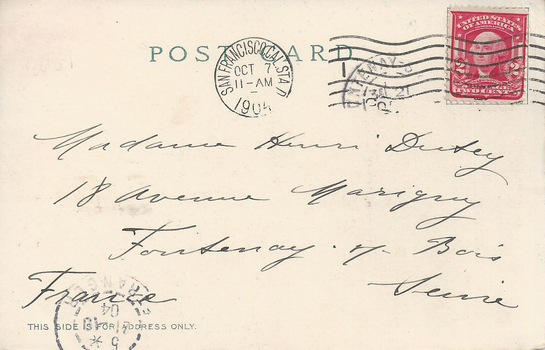 POST CARD
SAN FRANCISCO, CAL. STA. D
OCT 7
11-AM
1904
FONTENAY
21
UNITED STATES OF AMERICA
2 2
TWO CENTS
Madame Henri Dutey
18 Avenue Marigny
Fontenay s/ Bois
France Seine
ETRANGER
5 *
04
THIS SIDE IS FOR ADDRESS ONLY.